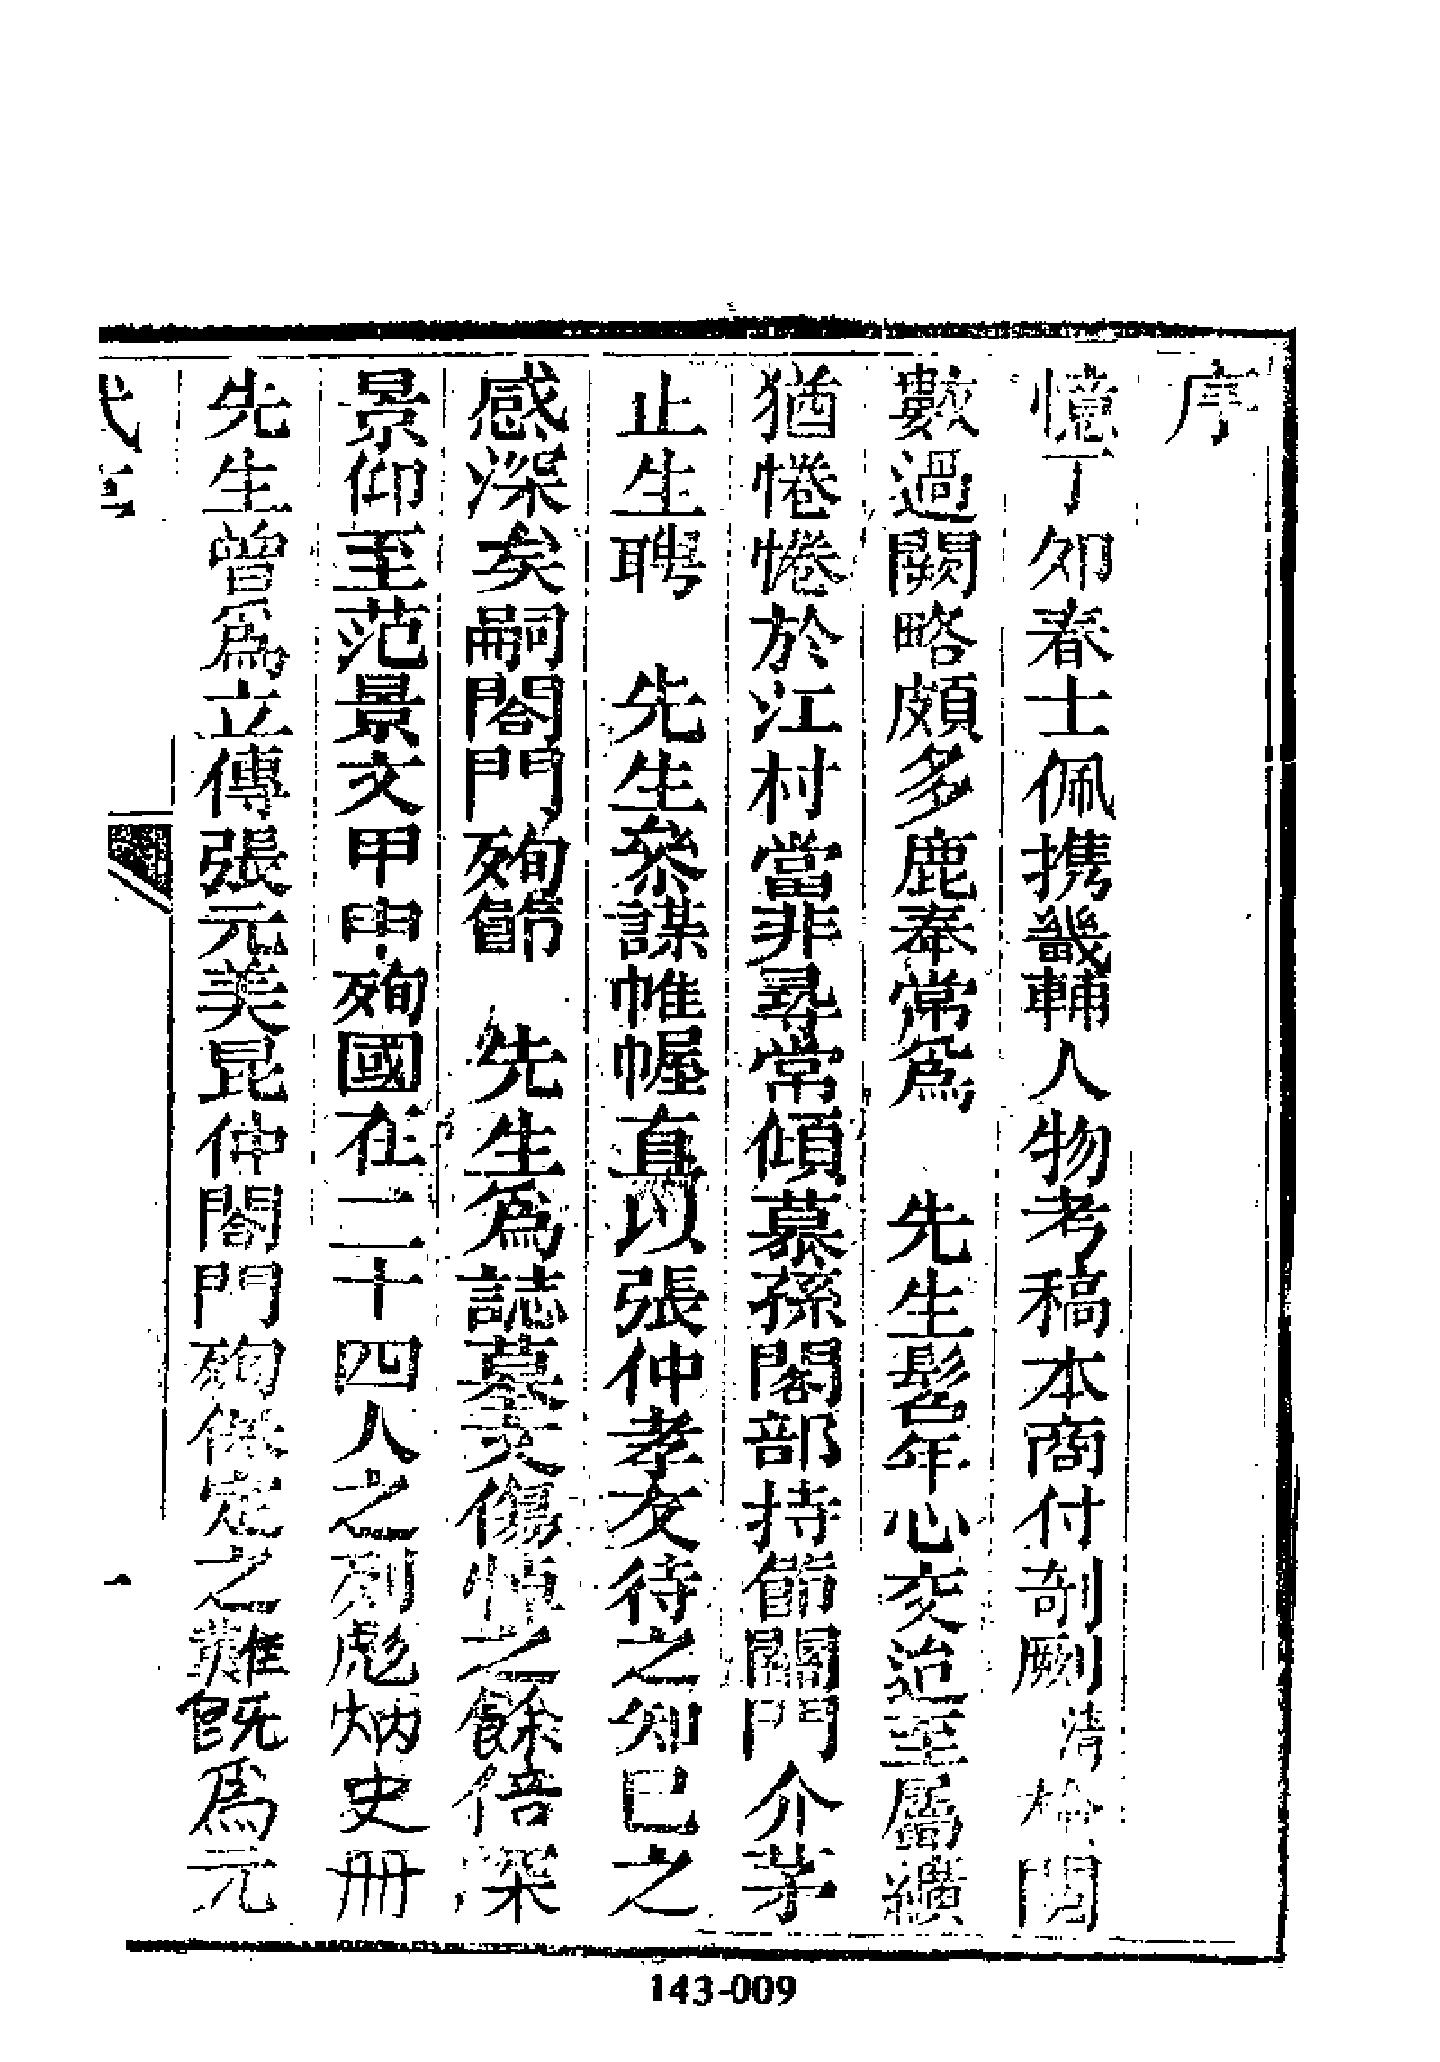 序
憶丁卯春士佩携畿輔人物考稿本商付剞劂清檢閱
數過闕略頗多鹿奉常爲　先生髫年心交迨至屬纊
猶惓惓於江村當非尋常傾慕孫閣部持節關門介茅
止生聘　先生叅謀帷幄直以張仲孝友待之知己之
感深矣嗣閤門殉節　先生爲誌墓文傷悼之餘倍深
景仰至范景文甲申殉國在二十四人之列彪炳史册
先生曾爲立傳張元美昆仲閤門殉保定之難旣爲元
一
143-009